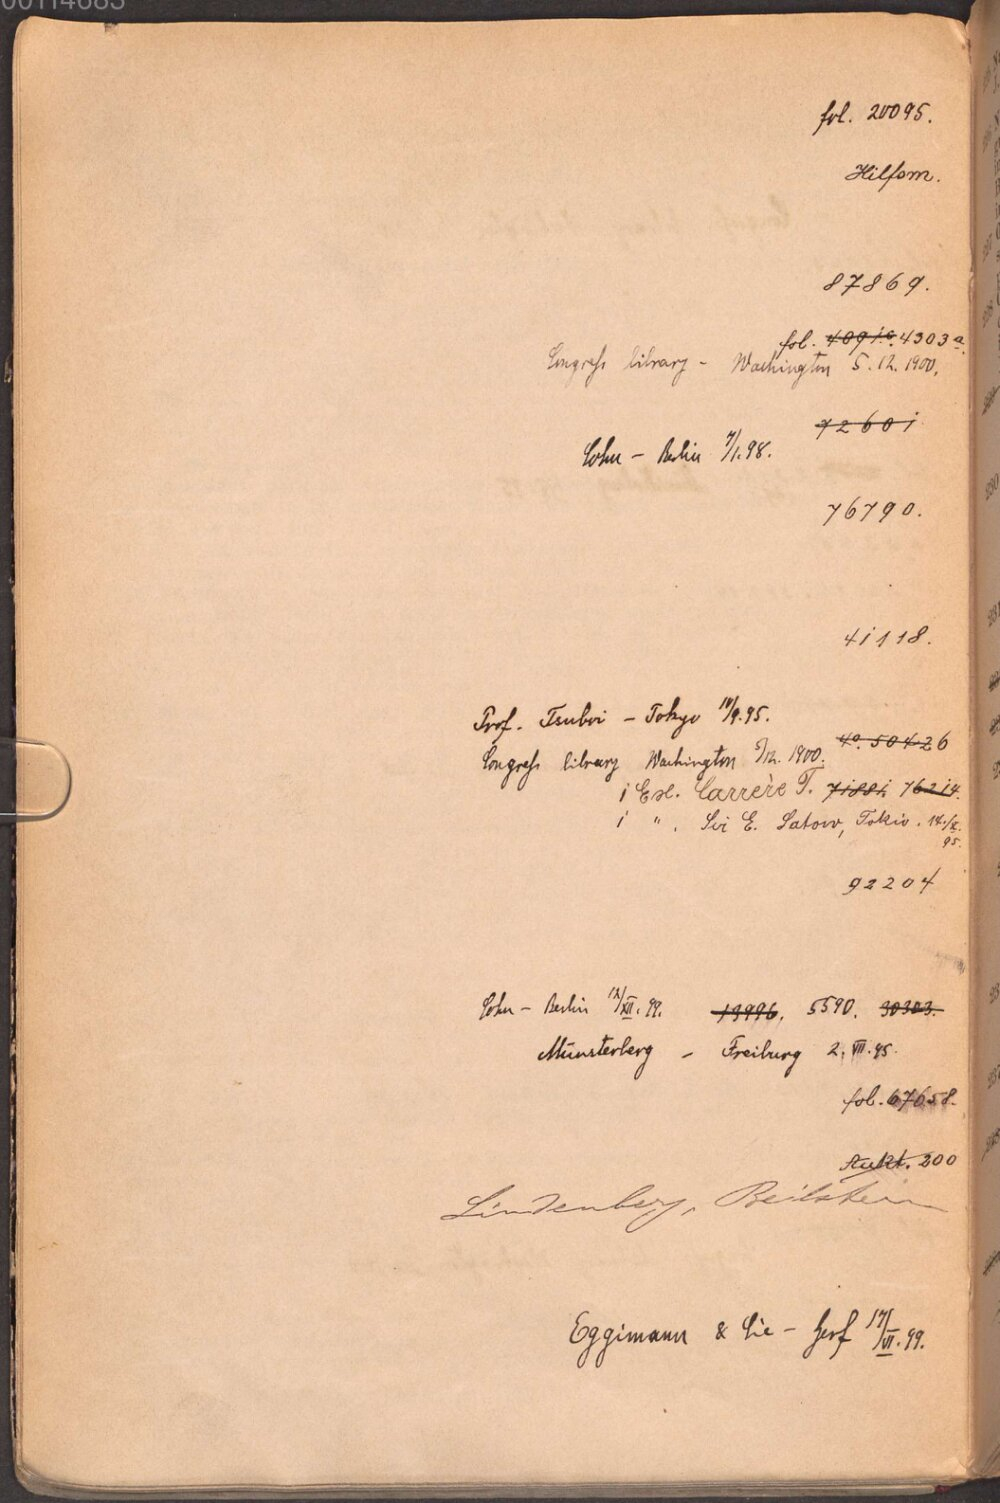 fol. 20095.
Hilfsm.
87869.
fol. 4091a. 4303a.
Congress library - Washington 5.12.1900.
72601
Cohn - Berlin 7/1.98.
76790.
41118.
Prof. Tsuboi - Tokyo /9.95.
4º. 50426
Congress library Washington 5/12. 1900.
1 Ex. Carrère T. 71881 76214.
1 ". Sir E. Satow, Tokio. 14./X. 95.
92204
Cohn - Berlin 12/XII. 99. 13996. 5590. 30303.
Münsterberg - Freiburg 2. VII. 95.
fol. 67658.
Aukt. 200
Lindenberg, Beilstein
Eggimann & Cie - Genf 17/VI. 99.